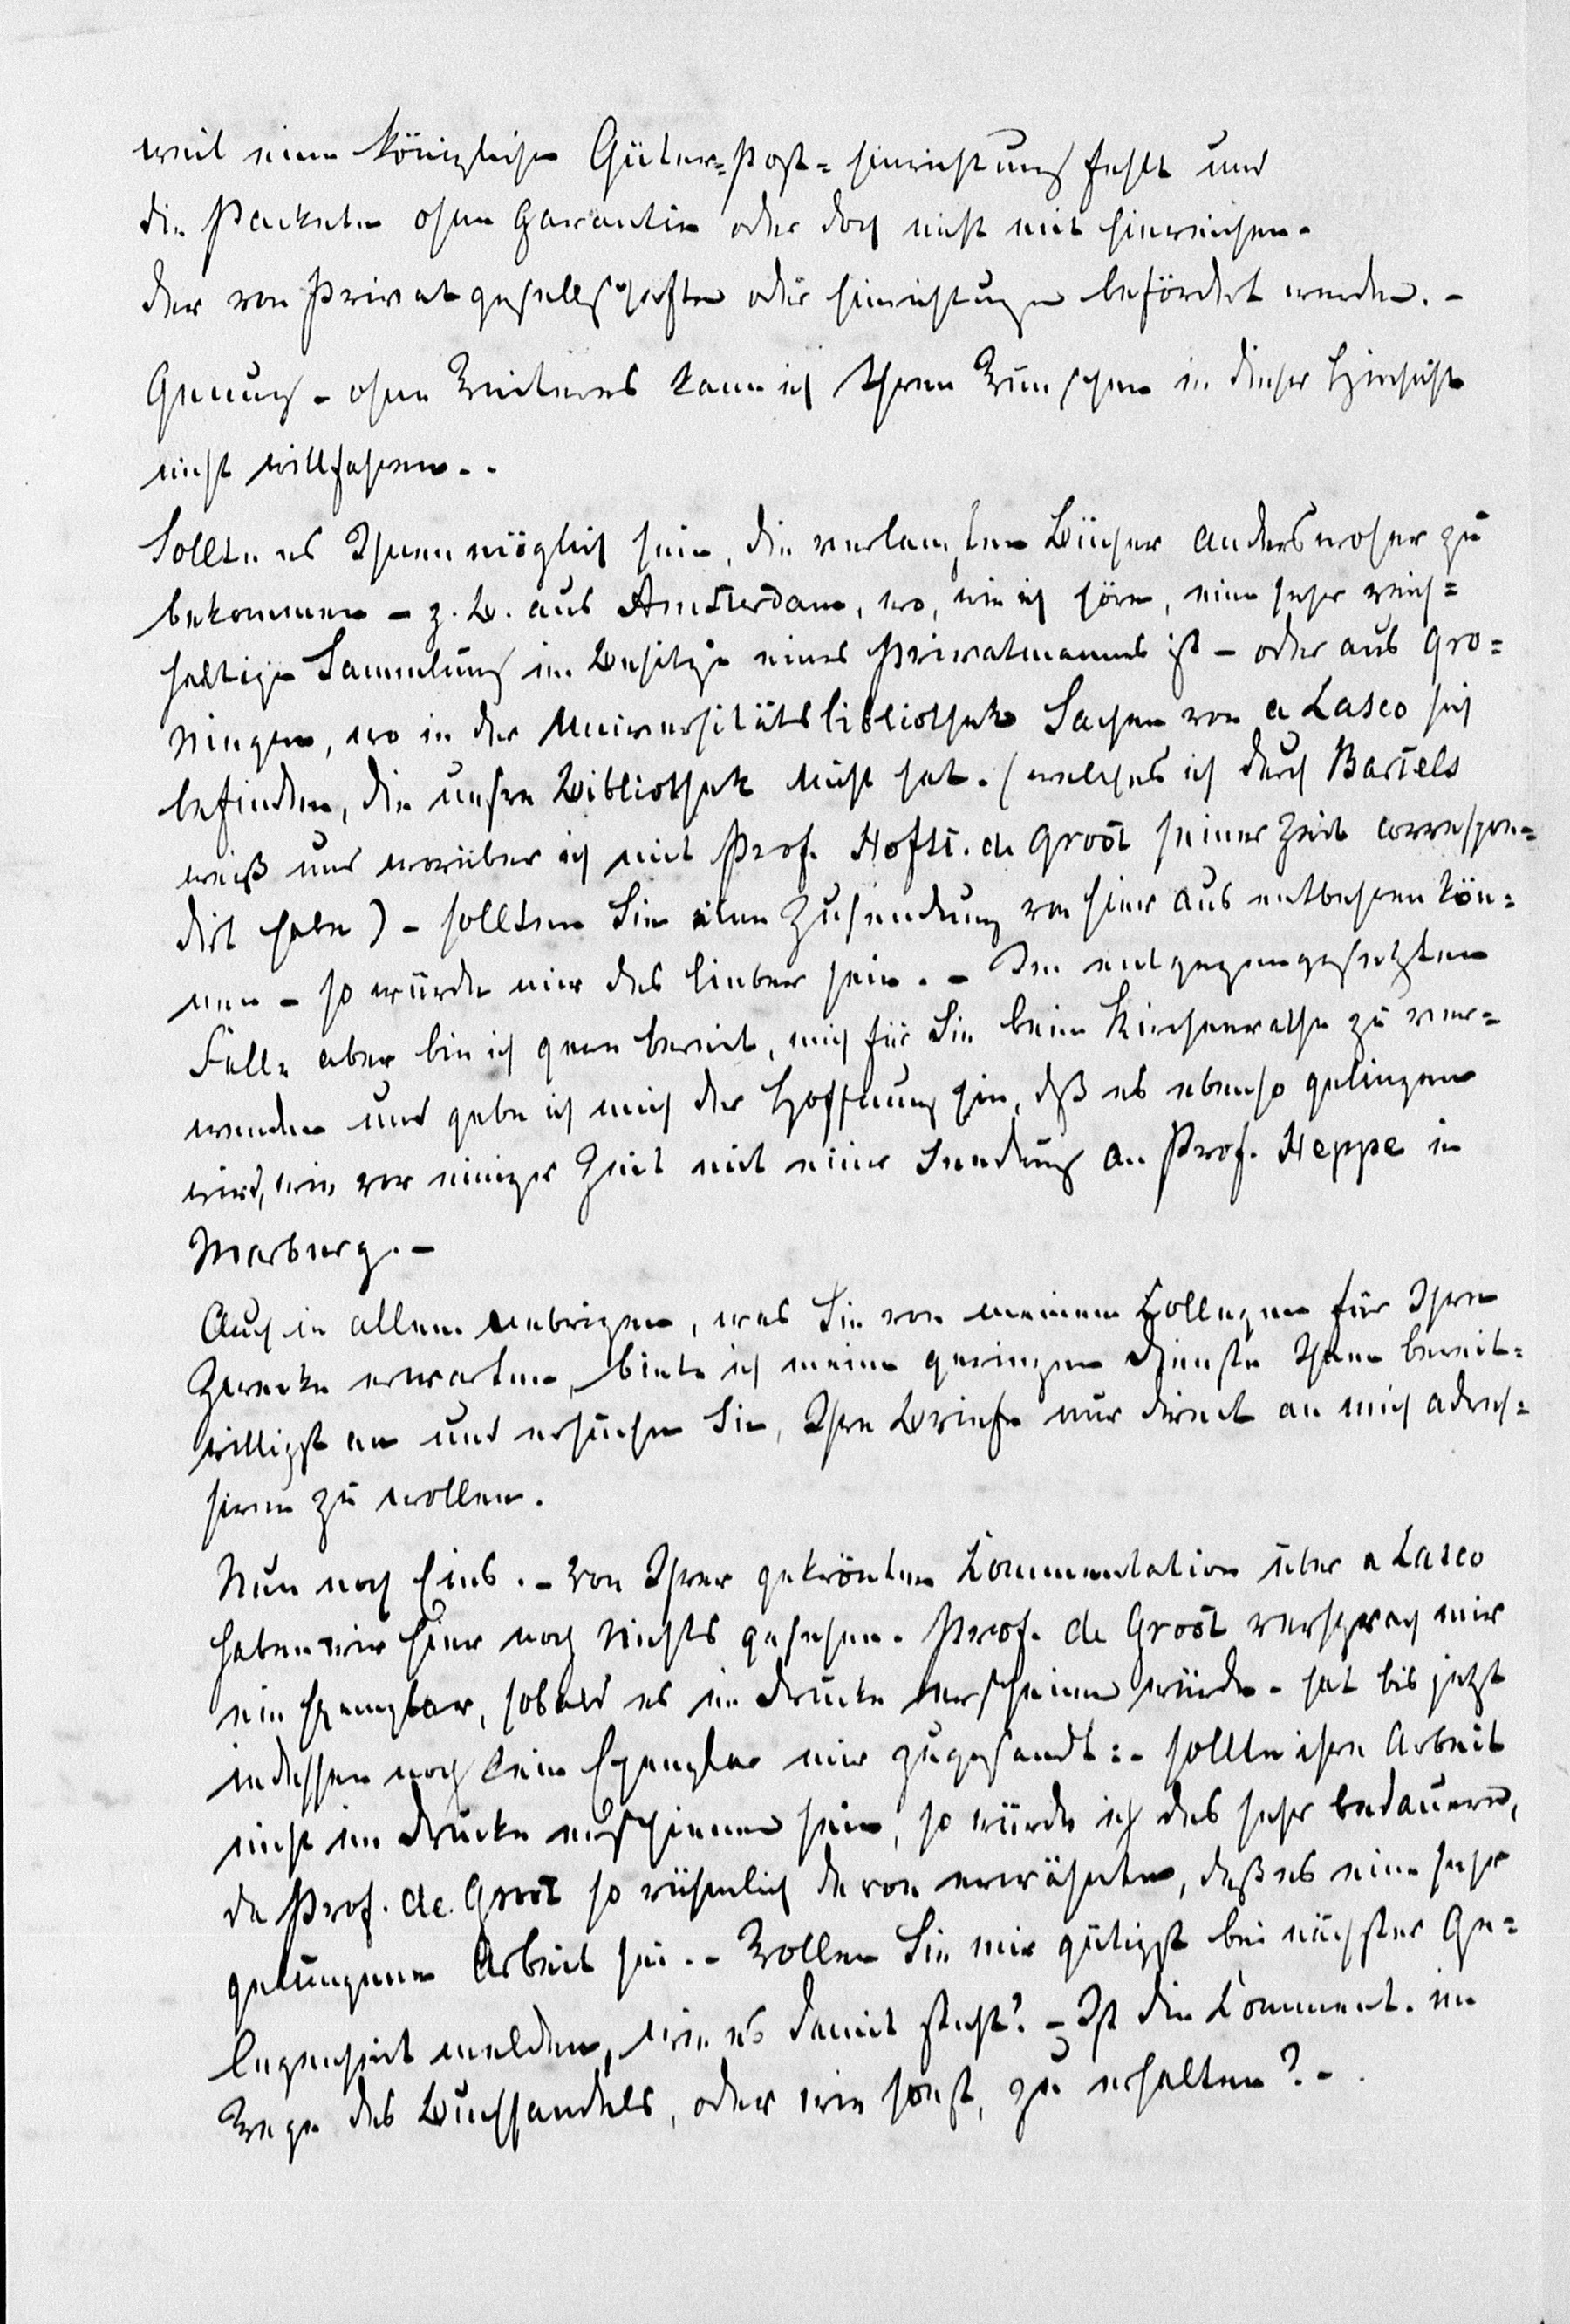 weil eine königliche Güter=Post=Einrichtung fehlt und
die Packete ohne Garantie oder doch nicht mit hinreichen-
der von Privatgesellschaften oder Einrichtungen befördert werden. -
Genug - ohne Weiteres kann ich Ihrem Wunsche in dieser Hinsicht
nicht willfahren. -
Sollte es Ihnen möglich sein, die verlangten Bücher anderswoher zu
bekommen - z. B. aus Amsterdam, wo, wie ich höre, eine sehr reich=
haltige Sammlung im Besitze eines Privatmannes ist - oder aus Gro=
ningen, wo in der Universitätsbibliothek Sachen von a Lasco sich
befinden, die unsre Bibliothek nicht hat. (welches ich durch Bartels
weiß und worüber ich mit Prof. Hofst. de Groot seiner Zeit correspon=
dirt habe) - sollten Sie eine Zusendung von hier aus entbehren kön=
nen - so würde mir das lieber sein. - Im entgegengesetzten
Falle aber bin ich gern bereit, mich für Sie beim Kirchenrathe zu ver=
wenden und gebe ich mich der Hoffnung hin, daß es ebenso gelingen
wird, wie vor einiger Zeit mit einer Sendung an Prof. Heppe in
Marburg. -
Auch in allem Uebrigen, was Sie von meinem Collegen für Ihre
Zwecke erwarten, biete ich meine geringen Dienste Ihnen bereit=
willigst an und ersuche Sie, Ihre Briefe nur direct an mich adres=
siren zu wollen.
Nun noch Eins. - Von Ihrer gekrönten Commentation über a Lasco
haben wir hier noch Nichts gesehen. Prof. de Groot versprach mir
ein Exemplar, sobald es im Drucke erscheinen würde - hat bis jetzt
indessen noch kein Exemplar mir zugesandt: - sollte ihre Arbeit
nicht im Drucke erschienen sein, so würde ich das sehr bedauern,
da Prof. de Groot so rühmlich davon erwähnte, daß es eine sehr
gelungene Arbeit sei. - Wollen Sie mir gütigst bei nächster Ge=
legenheit melden, wie es damit steht? - Ist die Comment. im
Wege des Buchhandels, oder wie sonst, zu erhalten? -